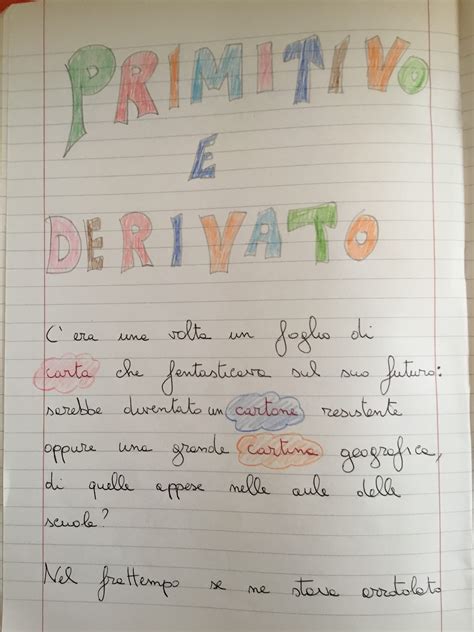 PRIMITIVO
E
DERIVATO
C'era una volta un foglio di
carta che fantasticava sul suo futuro:
sarebbe diventato un cartone resistente
oppure una grande cartina geografica,
di quelle appese nelle aule delle
scuole?
Nel frattempo se ne stava arrotolato